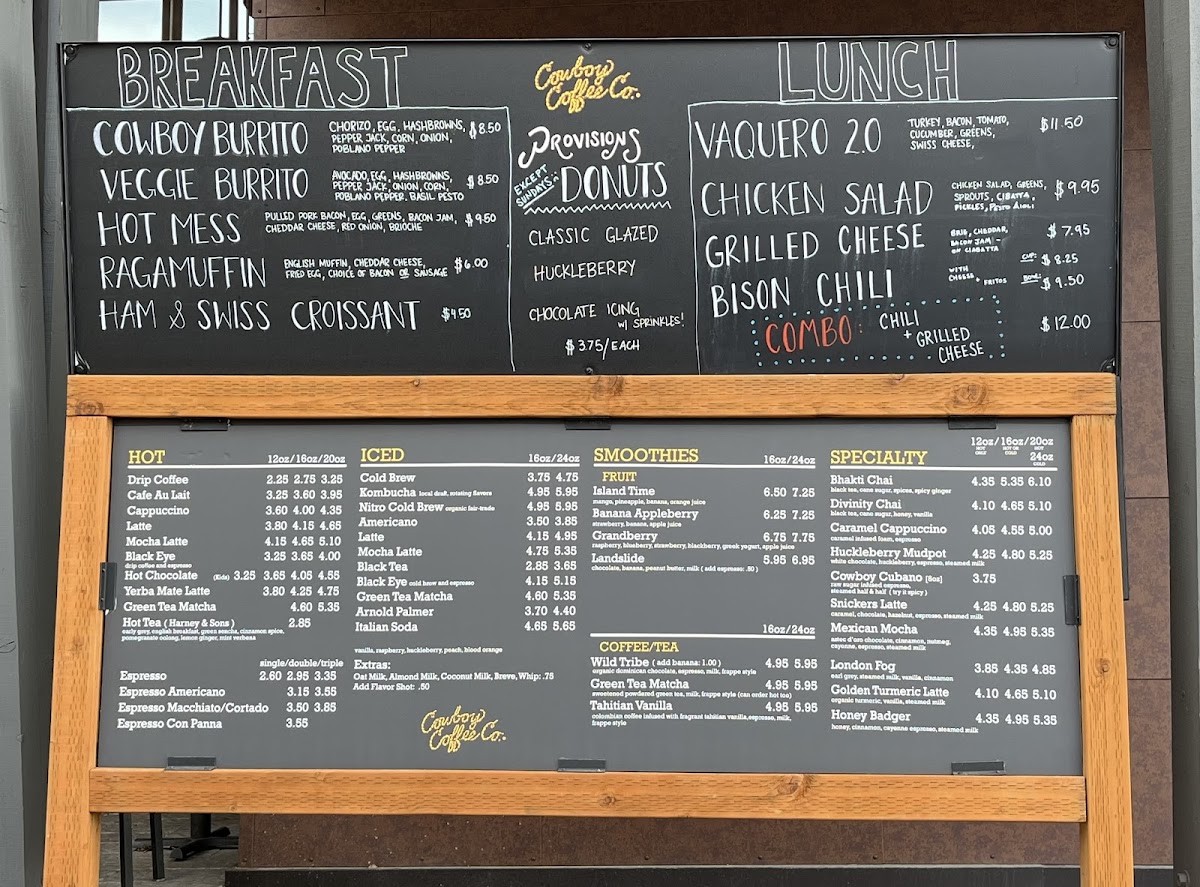 BREAKFAST
COWBOY BURRITO CHORIZO, EGG, HASHBROWNS, $8.50
PEPPER JACK, CORN, ONION,
POBLANO PEPPER
VEGGIE BURRITO AVOCADO, EGG, HASHBROWNS, $8.50
PEPPER JACK, ONION, CORN,
POBLANO PEPPER, BASIL PESTO
HOT MESS PULLED PORK BACON, EGG, GREENS, BACON JAM, $9.50
CHEDDAR CHEESE, RED ONION, BRIOCHE
RAGAMUFFIN ENGLISH MUFFIN, CHEDDAR CHEESE, $6.00
FRIED EGG, CHOICE OF BACON OR SAUSAGE
HAM & SWISS CROISSANT $4.50
Cowboy
Coffee Co.
PROVISIONS
EXCEPT
SUNDAYS
DONUTS
CLASSIC GLAZED
HUCKLEBERRY
CHOCOLATE ICING
W/ SPRINKLES!
$3.75/EACH
LUNCH
VAQUERO 2.0 TURKEY, BACON, TOMATO, $11.50
CUCUMBER, GREENS,
SWISS CHEESE,
CHICKEN SALAD CHICKEN SALAD, GREENS, $9.95
SPROUTS, CIBATTA,
PICKLES, PESTO AIOLI
GRILLED CHEESE BRIE, CHEDDAR, $7.95
BACON JAM -
ON CIABATTA
BISON CHILI WITH CHEESE + FRITOS
CUP: $8.25
BOWL: $9.50
COMBO: CHILI $12.00
+ GRILLED
CHEESE
HOT 12oz/16oz/20oz
Drip Coffee 2.25 2.75 3.25
Cafe Au Lait 3.25 3.60 3.95
Cappuccino 3.60 4.00 4.35
Latte 3.80 4.15 4.65
Mocha Latte 4.15 4.65 5.10
Black Eye 3.25 3.65 4.00
drip coffee and espresso
Hot Chocolate (Kids) 3.25 3.65 4.05 4.55
Yerba Mate Latte 3.80 4.25 4.75
Green Tea Matcha 4.60 5.35
Hot Tea ( Harney & Sons ) 2.85
early grey, english breakfast, green sencha, cinnamon spice,
pomegranate oolong, lemon ginger, mint verbena
single/double/triple
Espresso 2.60 2.95 3.35
Espresso Americano 3.15 3.55
Espresso Macchiato/Cortado 3.50 3.85
Espresso Con Panna 3.55
ICED 16oz/24oz
Cold Brew 3.75 4.75
Kombucha local draft, rotating flavors 4.95 5.95
Nitro Cold Brew organic fair-trade 4.95 5.95
Americano 3.50 3.85
Latte 4.15 4.95
Mocha Latte 4.75 5.35
Black Tea 2.85 3.65
Black Eye cold brew and espresso 4.15 5.15
Green Tea Matcha 4.60 5.35
Arnold Palmer 3.70 4.40
Italian Soda 4.65 5.65
vanilla, raspberry, huckleberry, peach, blood orange
Extras:
Oat Milk, Almond Milk, Coconut Milk, Breve, Whip: .75
Add Flavor Shot: .50
Cowboy
Coffee Co.
SMOOTHIES 16oz/24oz
FRUIT
Island Time 6.50 7.25
mango, pineapple, banana, orange juice
Banana Appleberry 6.25 7.25
strawberry, banana, apple juice
Grandberry 6.75 7.75
raspberry, blueberry, strawberry, blackberry, greek yogurt, apple juice
Landslide 5.95 6.95
chocolate, banana, peanut butter, milk ( add espresso: .50 )
16oz/24oz
COFFEE/TEA
Wild Tribe ( add banana: 1.00 ) 4.95 5.95
organic dominican chocolate, espresso, milk, frappe style
Green Tea Matcha 4.95 5.95
sweetened powdered green tea, milk, frappe style (can order hot too)
Tahitian Vanilla 4.95 5.95
colombian coffee infused with fragrant tahitian vanilla, espresso, milk,
frappe style
SPECIALTY 12oz/16oz/20oz
HOT ONLY HOT OR COLD HOT
24oz
COLD
Bhakti Chai 4.35 5.35 6.10
black tea, cane sugar, spices, spicy ginger
Divinity Chai 4.10 4.65 5.10
black tea, cane sugar, honey, vanilla
Caramel Cappuccino 4.05 4.55 5.00
caramel infused foam, espresso
Huckleberry Mudpot 4.25 4.80 5.25
white chocolate, huckleberry, espresso, steamed milk
Cowboy Cubano [6oz] 3.75
raw sugar infused espresso,
steamed half & half ( try it spicy )
Snickers Latte 4.25 4.80 5.25
caramel, chocolate, hazelnut, espresso, steamed milk
Mexican Mocha 4.35 4.95 5.35
aztec d'oro chocolate, cinnamon, nutmeg,
cayenne, espresso, steamed milk
London Fog 3.85 4.35 4.85
earl grey, steamed milk, vanilla, cinnamon
Golden Turmeric Latte 4.10 4.65 5.10
organic turmeric, vanilla, steamed milk
Honey Badger 4.35 4.95 5.35
honey, cinnamon, cayenne espresso, steamed milk